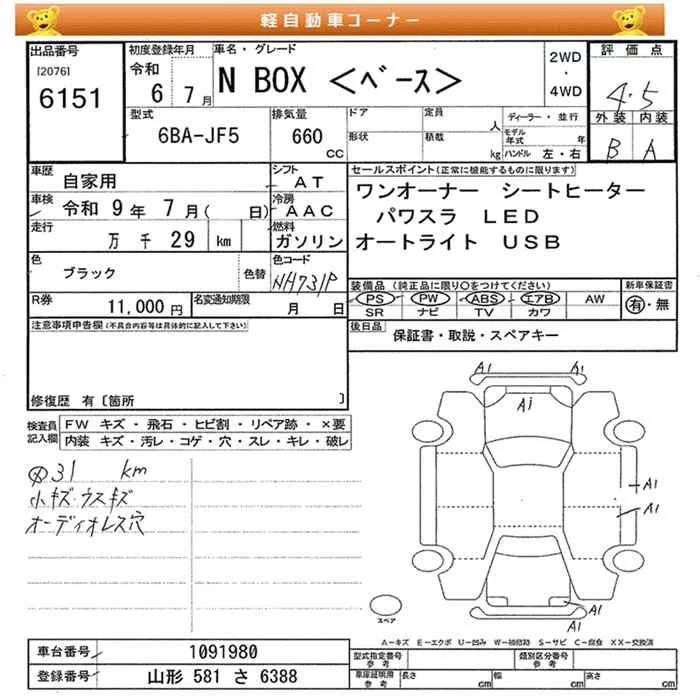 軽自動車コーナー
出品番号 初度登録年月 車名・グレード 2WD・4WD 評価点
[2076] 6151 令和 6 7月 N BOX <ベース> 4.5
型式 排気量 ドア 定員 人 ディーラー・並行 外装 内装
6BA-JF5 660 CC 形状 積載 kg モデル年式 年 ハンドル 左・右 B A
車歴 自家用 シフト AT セールスポイント(正常に機能するものに限ります)
車検 令和 9年 7月( 日) 冷房 AAC ワンオーナー シートヒーター
走行 万 千 29 km 燃料 ガソリン パワスラ LED
オートライト USB
色 ブラック 色替 色コード NH731P
装備品 (純正品に限り○をつけてください) 新車保証書
PS PW ABS エアB AW 有・無
SR ナビ TV カワ
R券 11,000円 名変通知期限 月 日
後日品 保証書・取説・スペアキー
注意事項申告欄(不具合内容等は具体的に記入して下さい)
修復歴 有〔箇所 〕
検査員記入欄 FW キズ・飛石・ヒビ割・リペア跡・×要
内装 キズ・汚レ・コゲ・穴・スレ・キレ・破レ
31 km
小キズ・ウスキズ
オーディオレス穴
A1 A1
A1
A1
A1
A1
A1
スペア
A-キズ E-エクボ U-凹み W-補修跡 S-サビ C-腐食 XX-交換済
車台番号 1091980 型式指定番号 参考 類別区分番号 参考
登録番号 山形 581 さ 6388 車庫証明用 参考 長さ cm 幅 cm 高さ cm